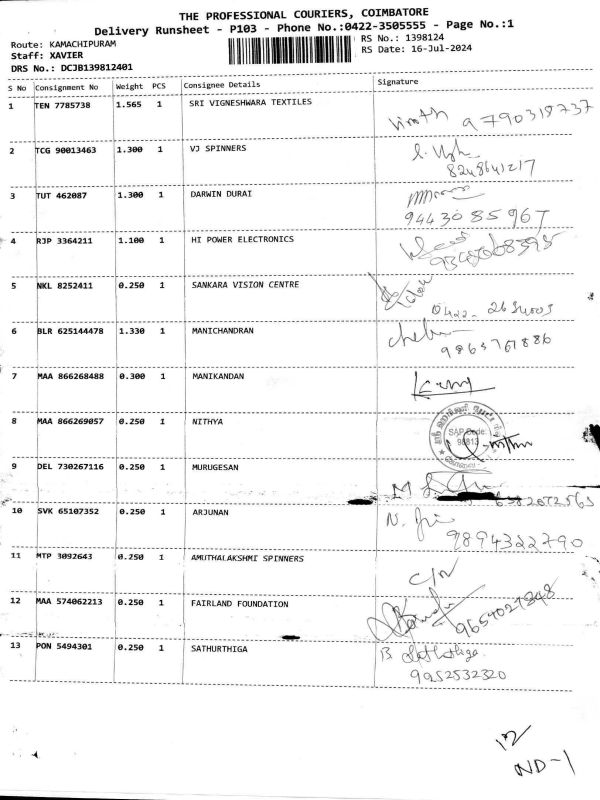 THE PROFESSIONAL COURIERS, COIMBATORE
Delivery Runsheet - P103 - Phone No.:0422-3505555 - Page No.:1
Route: KAMACHIPURAM
RS No.: 1398124
Staff: XAVIER
RS Date: 16-Jul-2024
DRS No.: DCJB139812401
S No Consignment No Weight PCS Consignee Details Signature
1 TEN 7785738 1.565 1 SRI VIGNESHWARA TEXTILES
9790319737
2 TCG 90013463 1.300 1 VJ SPINNERS
8248641217
3 TUT 462087 1.300 1 DARWIN DURAI
9443085967
4 RJP 3364211 1.100 1 HI POWER ELECTRONICS
5 NKL 8252411 0.250 1 SANKARA VISION CENTRE
6 BLR 625144478 1.330 1 MANICHANDRAN
9865767886
7 MAA 866268488 0.300 1 MANIKANDAN
8 MAA 866269057 0.250 1 NITHYA
SAP Code:
98813
9 DEL 730267116 0.250 1 MURUGESAN
10 SVK 65107352 0.250 1 ARJUNAN
9894322790
11 MTP 3092643 0.250 1 AMUTHALAKSHMI SPINNERS
C/N
12 MAA 574062213 0.250 1 FAIRLAND FOUNDATION
9654027848
13 PON 5494301 0.250 1 SATHURTHIGA
9952532320
12
ND-1